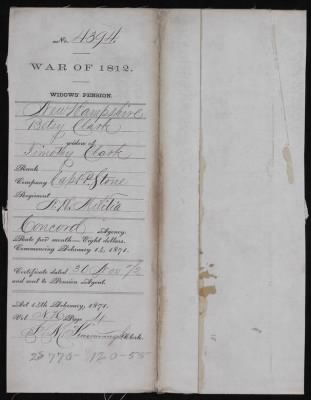 No. 4394
WAR OF 1812.
WIDOWS' PENSION.
New Hampshire
Betsy Clark
widow of
Timothy Clark
Rank
Company Capt P. Stone
Regiment
N.H. Militia
Concord Agency.
Rate per month—Eight dollars.
Commencing February 14, 1871.
Certificate dated 30 Nov 72
and sent to Pension Agent.
Act 14th February, 1871.
Vol. N.H. Page 4
Clerk.
25 770 - 120-55